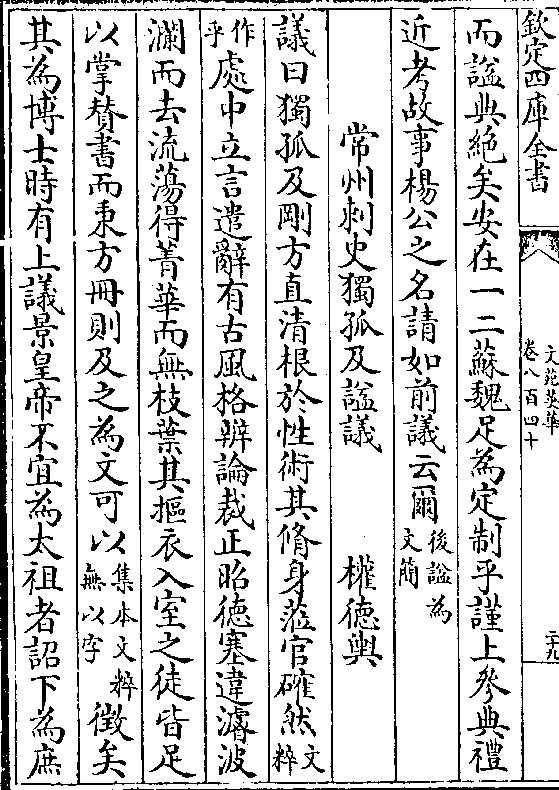 欽定四庫全書
文苑英華
卷八百四十
二十九
而諡典絶矣安在一二蘇魏足為定制乎謹上參典禮
近考故事楊公之名請如前議云爾後諡為文簡
常州刺史獨孤及諡議 權德輿
議曰獨孤及剛方直清根於性術其脩身蒞官確然文粹
作乎處中立言遣辭有古風格辨論裁正昭德塞違濬波
瀾而去流蕩得菁華而無枝葉其摳衣入室之徒皆足
以掌賛書而秉方冊則及之為文可以集本文粹無以字徴矣
其為博士時有上議景皇帝不宜為太祖者詔下為庶